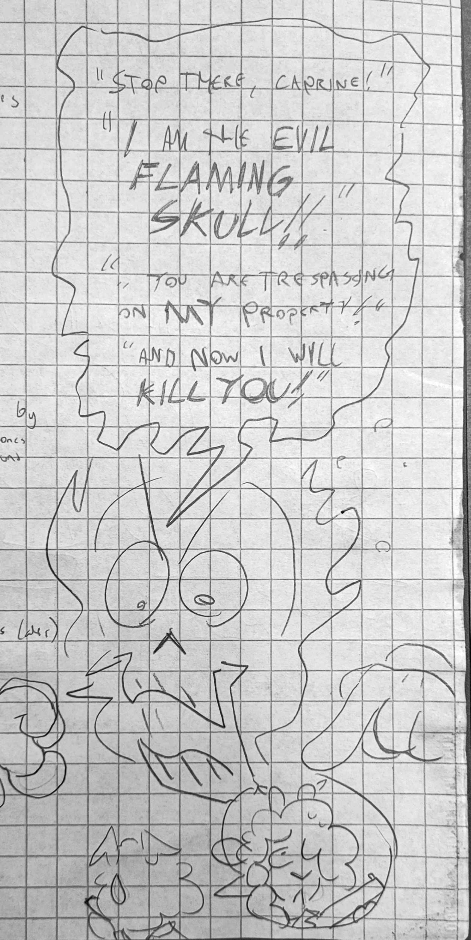 's
"STOP THERE, CAPRINE!"
"I AM THE EVIL
FLAMING
SKULL!!"
" YOU ARE TRESPASSING
ON MY PROPERTY!"
"AND NOW I WILL
KILL YOU!"
by